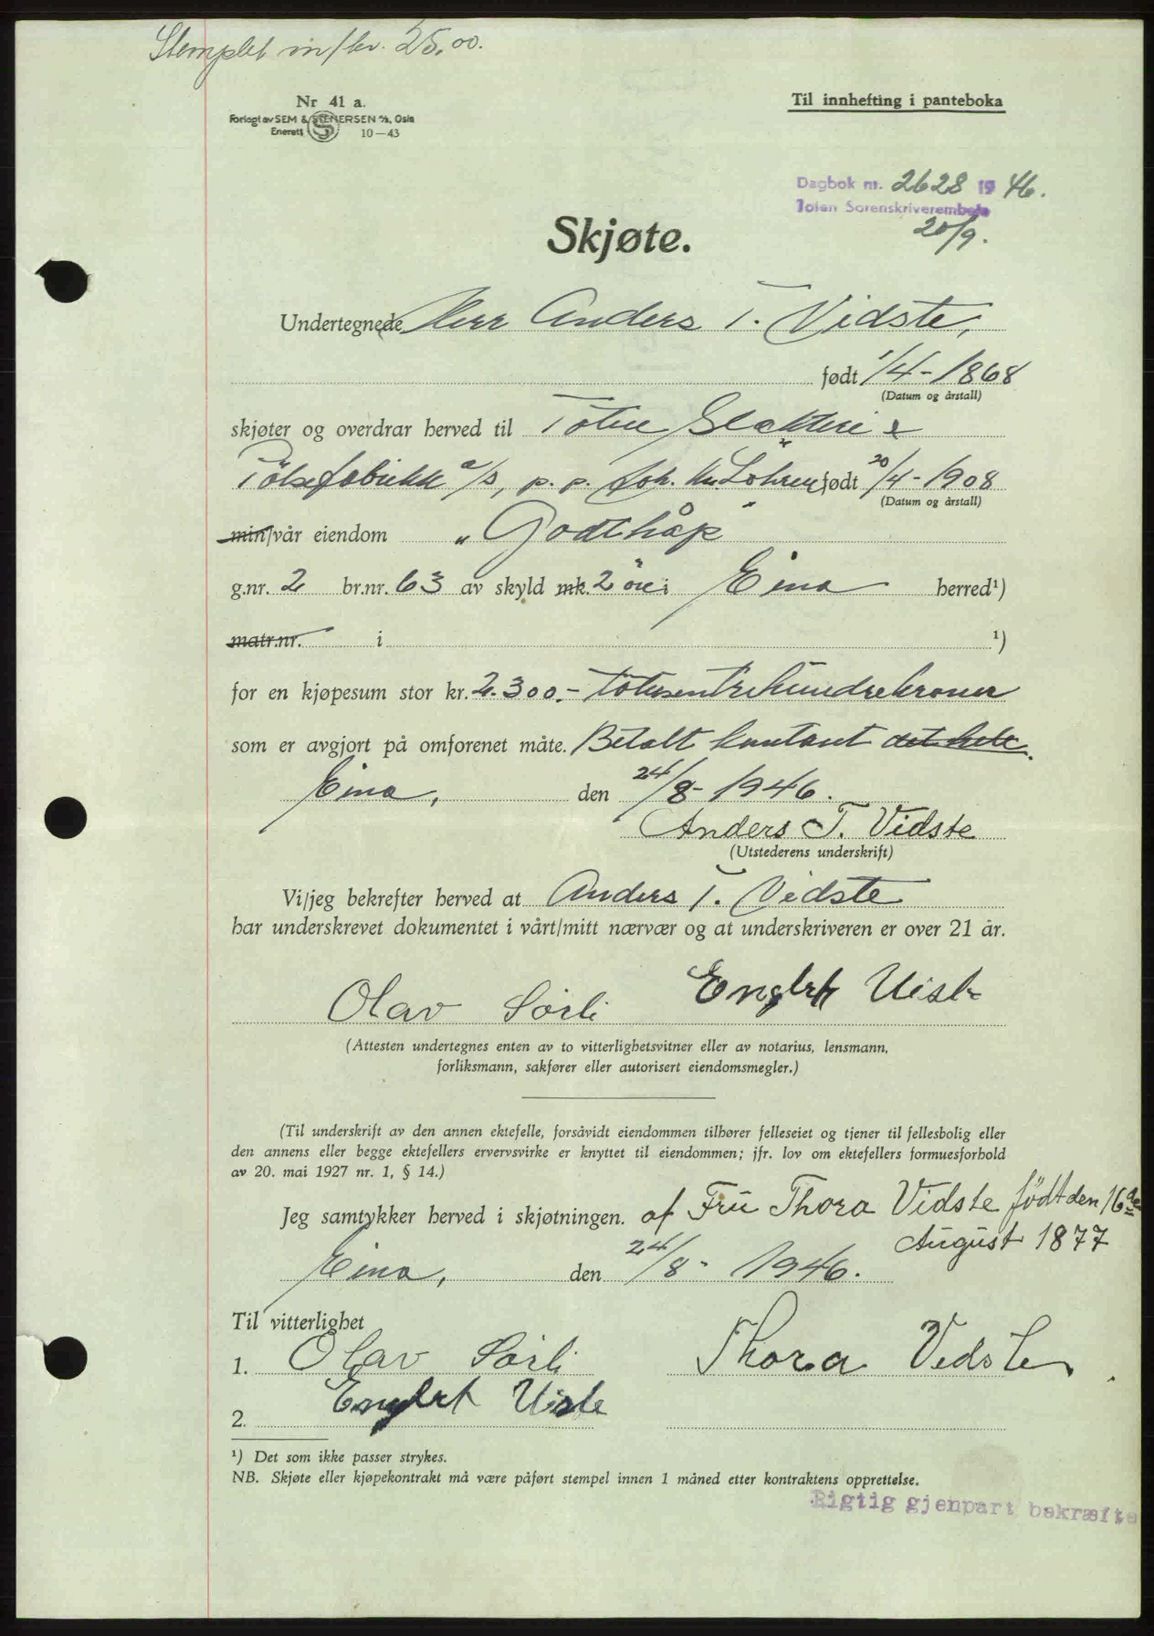 Stemplet m/kr. 25.00.
Nr 41 a.
Forlagt av SEM & STENERSEN A/S, Oslo
Enerett S 10—43
Til innhefting i panteboka
Dagbok nr. 2628 1946.
Toten Sorenskriverembete
20/9.
Skjøte.
Undertegnede Herr Anders T. Vidste,
født 1/4-1868
(Datum og årstall)
skjøter og overdrar herved til Toten Slakteri &
Pölsefabrikk a/s, p. p. Joh. Kr. Löhren født 20/4-1908
(Datum og årstall)
min/vår eiendom „Godthåp"
g.nr. 2 br.nr. 63 av skyld mk. 2 öre i Eina herred¹)
matr.nr. i ¹)
for en kjøpesum stor kr. 2.300.- totusentrehundrekroner
som er avgjort på omforenet måte. Betalt kontant det hele.
Eina, den 24/8-1946.
Anders T. Vidste
(Utstederens underskrift)
Vi/jeg bekrefter herved at Anders T. Vidste
har underskrevet dokumentet i vårt/mitt nærvær og at underskriveren er over 21 år.
Olav Sörli Englbrt Viste
(Attesten undertegnes enten av to vitterlighetsvitner eller av notarius, lensmann,
forliksmann, sakfører eller autorisert eiendomsmegler.)
(Til underskrift av den annen ektefelle, forsåvidt eiendommen tilhører felleseiet og tjener til fellesbolig eller
den annens eller begge ektefellers ervervsvirke er knyttet til eiendommen; jfr. lov om ektefellers formuesforhold
av 20. mai 1927 nr. 1, § 14.)
Jeg samtykker herved i skjøtningen. af Fru Thora Vidste født den 16de
August 1877
Eina, den 24/8- 1946.
Til vitterlighet
1. Olav Sörli Thora Vidste
2. Englbrt Viste
¹) Det som ikke passer strykes.
NB. Skjøte eller kjøpekontrakt må være påført stempel innen 1 måned etter kontraktens opprettelse.
Rigtig gjenpart bekræftes